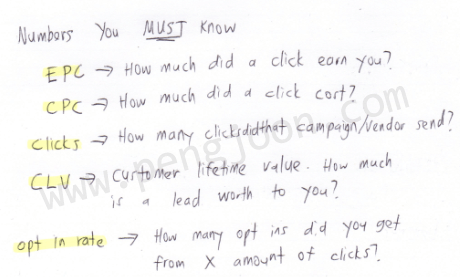 Numbers You MUST Know
EPC → How much did a click earn you?
CPC → How much did a click cost?
Clicks → How many clicks did that campaign/vendor send?
CLV → Customer lifetime value. How much
is a lead worth to you?
opt in rate → How many opt ins did you get
from X amount of clicks?
www.pengjoon.com